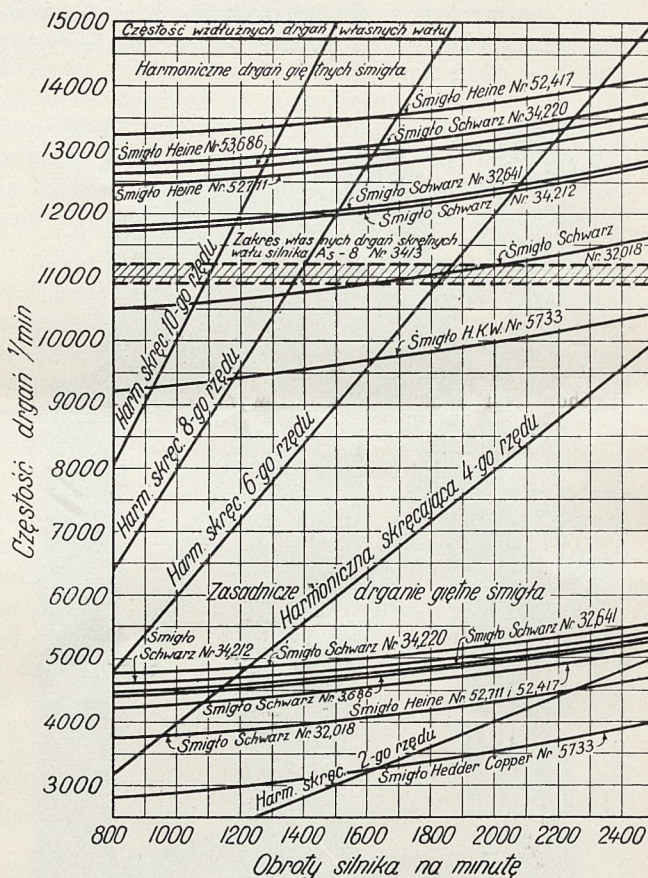 15000
14000
13000
12000
11000
10000
9000
8000
7000
6000
5000
4000
3000
Częstość drgań 1/min
Częstość wzdłużnych drgań własnych wału
Harmoniczne drgań giętnych śmigła
Śmigło Heine Nr 52,417
Śmigło Schwarz Nr 34,220
Śmigło Heine Nr 53,686
Śmigło Heine Nr 52,711
Śmigło Schwarz Nr 32,641
Śmigło Schwarz Nr 34,212
Zakres własnych drgań skrętnych
wału silnika As-8 Nr 34/3
Śmigło Schwarz
Nr 32,018
Śmigło H.K.W. Nr 5733
Harm. skręc. 10-go rzędu
Harm. skręc. 8-go rzędu
Harm. skręc. 6-go rzędu
Harmoniczna skręcająca 4-go rzędu
Zasadnicze drganie giętne śmigła
Śmigło
Schwarz Nr 34,212
Śmigło Schwarz Nr 34,220
Śmigło Schwarz Nr 32,641
Śmigło Schwarz Nr 3,686
Śmigło Heine Nr 52,711 i 52,417
Śmigło Schwarz Nr 32,018
Harm. skręc. 2-go rzędu
Śmigło Hedder Copper Nr 5733
800 1000 1200 1400 1600 1800 2000 2200 2400
Obroty silnika na minutę